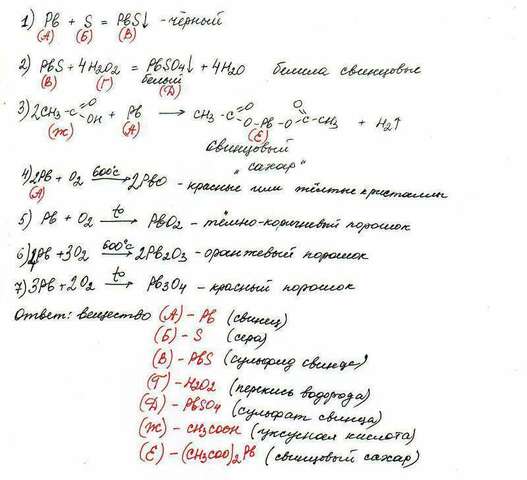 1) Pb + S = PbS↓ - чёрный
(А) (Б) (В)
2) PbS + 4H2O2 = PbSO4↓ + 4H2O белила свинцовые
(В) (Г) белый (Д)
3) 2CH3-C=O OH + Pb → CH3-C=O O-Pb-O O=C-CH3 + H2↑
(Ж) (А) (Е)
свинцовый
"сахар"
4) 2Pb + O2 600°C 2PbO - красные или жёлтые кристаллы
(А)
5) Pb + O2 to→ PbO2 - тёмно-коричневый порошок
6) 4Pb + 3O2 600°C→ 2Pb2O3 - оранжевый порошок
7) 3Pb + 2O2 to→ Pb3O4 - красный порошок
Ответ: вещество (А) - Pb (свинец)
(Б) - S (сера)
(В) - PbS (сульфид свинца)
(Г) - H2O2 (перекись водорода)
(Д) - PbSO4 (сульфат свинца)
(Ж) - CH3COOH (уксусная кислота)
(Е) - (CH3COO)2Pb (свинцовый сахар)